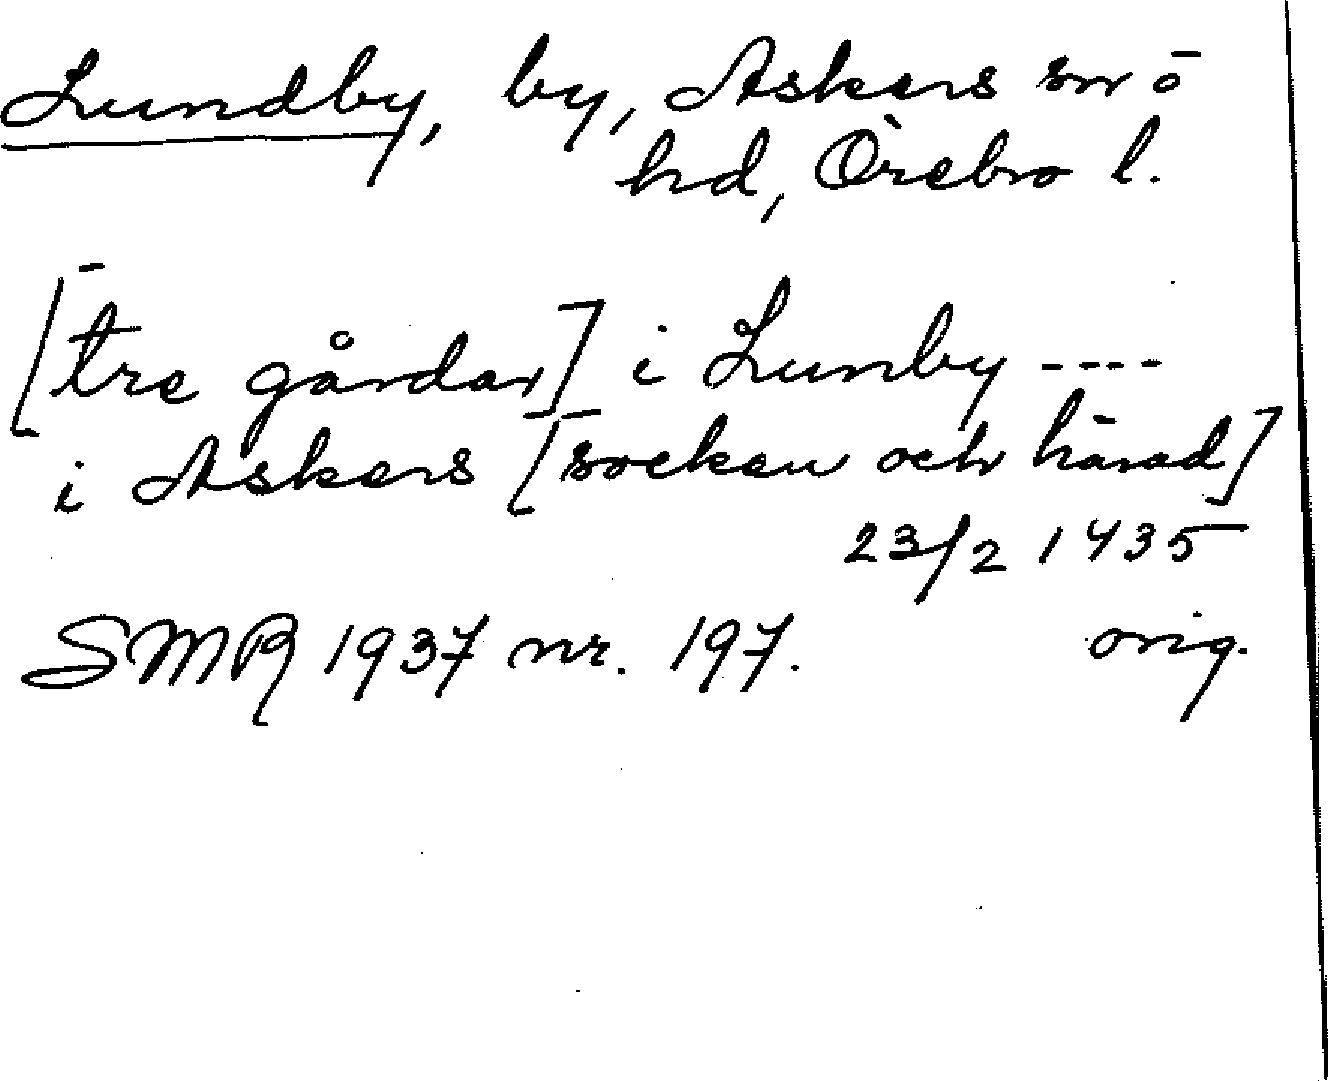 Lundby, by, Askers sn o
hd, Örebro l.
[tre gårdar] i Lunby ----
i Askers [socken och härad]
23/2 1435
SMR 1937 nr. 197. orig.